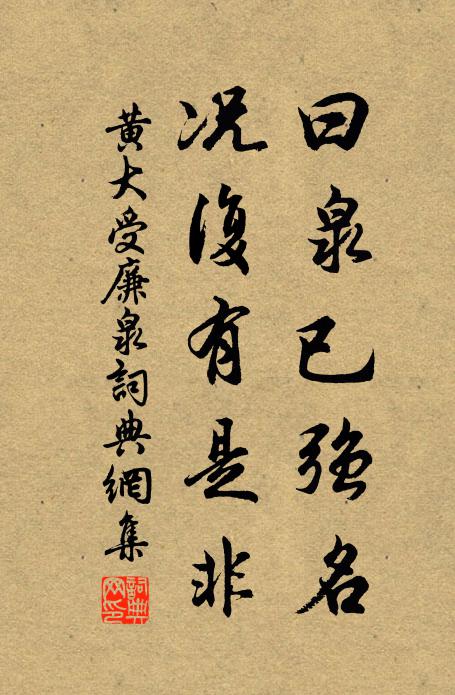 曰泉已強名
况復有是非
黄大受廉泉詞典網集
詞典网印